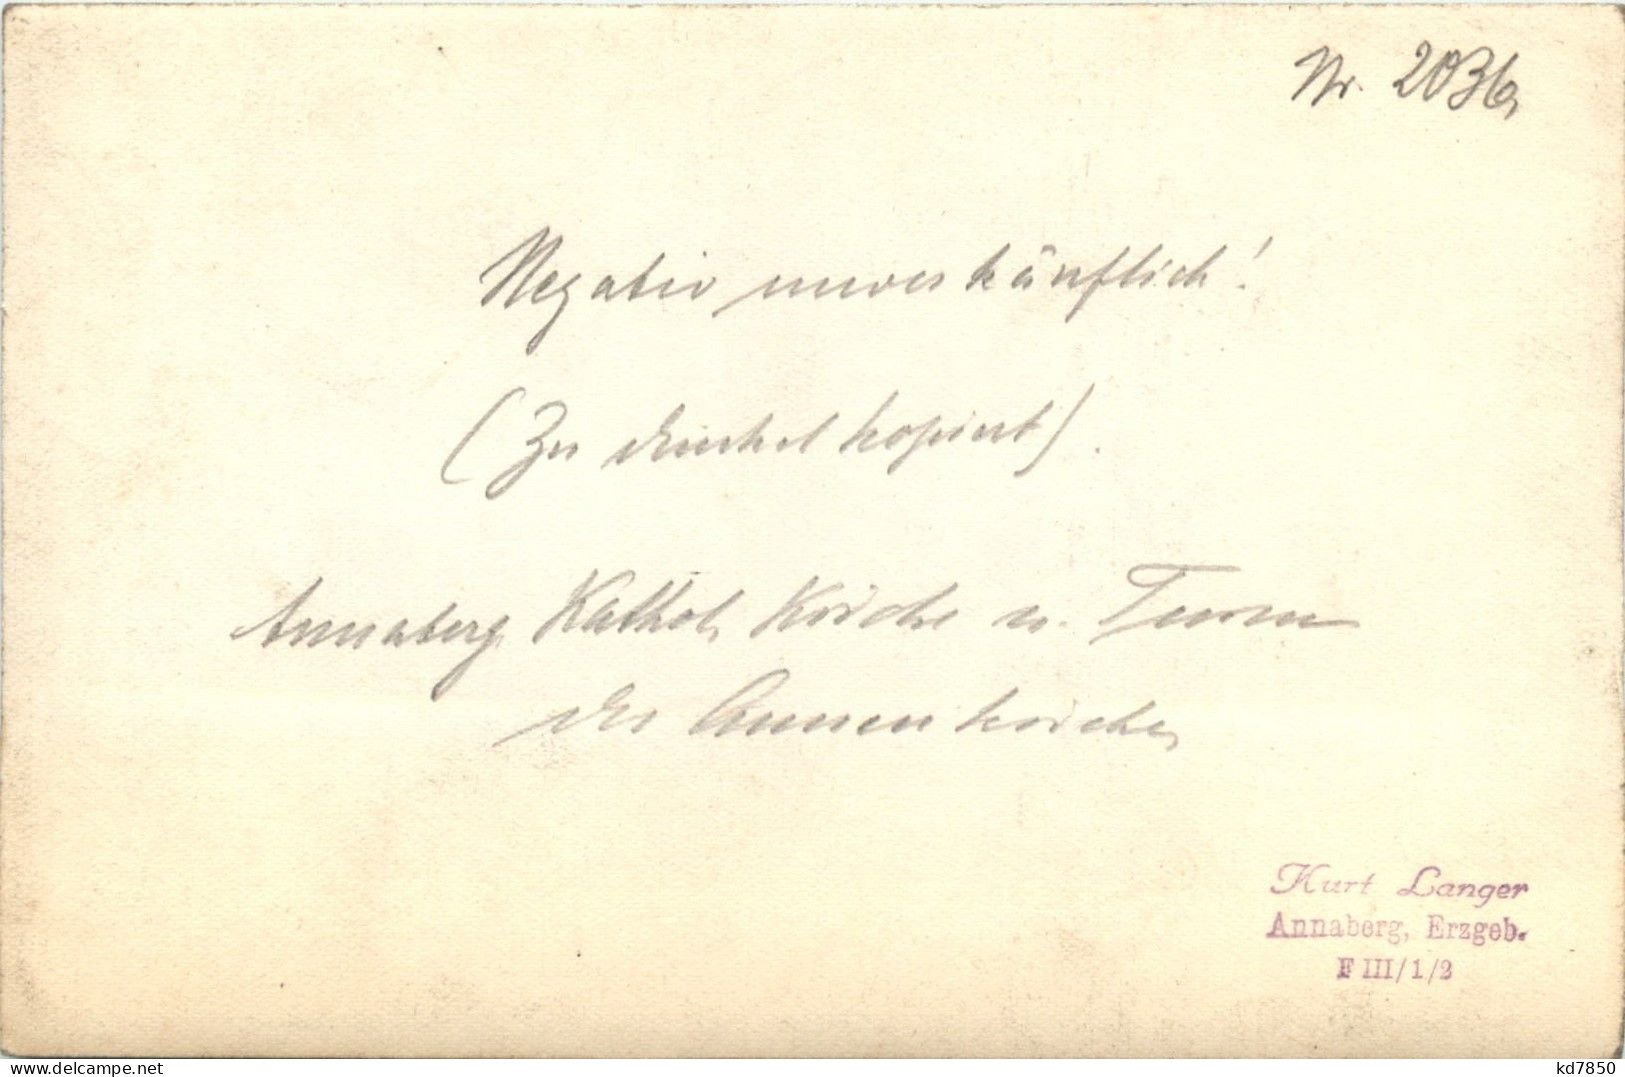 Nr. 2036,
Negativ unverkäuflich!
(Zu dunkel kopiert).
Annaberg, Kathol. Kirche u. Turm
der Annenkirche,
Kurt Langer
Annaberg, Erzgeb.
F III/1/2
www.delcampe.net
kd7850